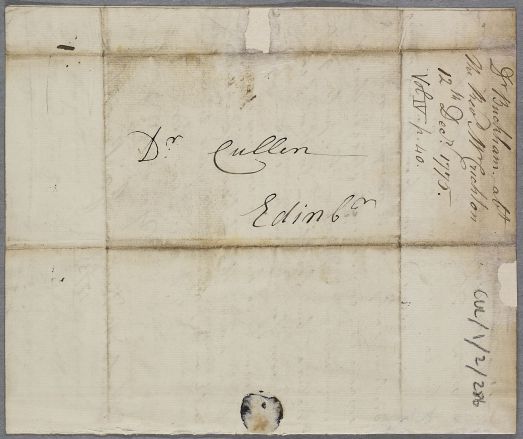 Dr Cullen
Edinbr
Dr Buckham. abt
the Revd Mr Crichton
12th Decr. 1775.
Vol IV. p. 40
CUL/1/2/286